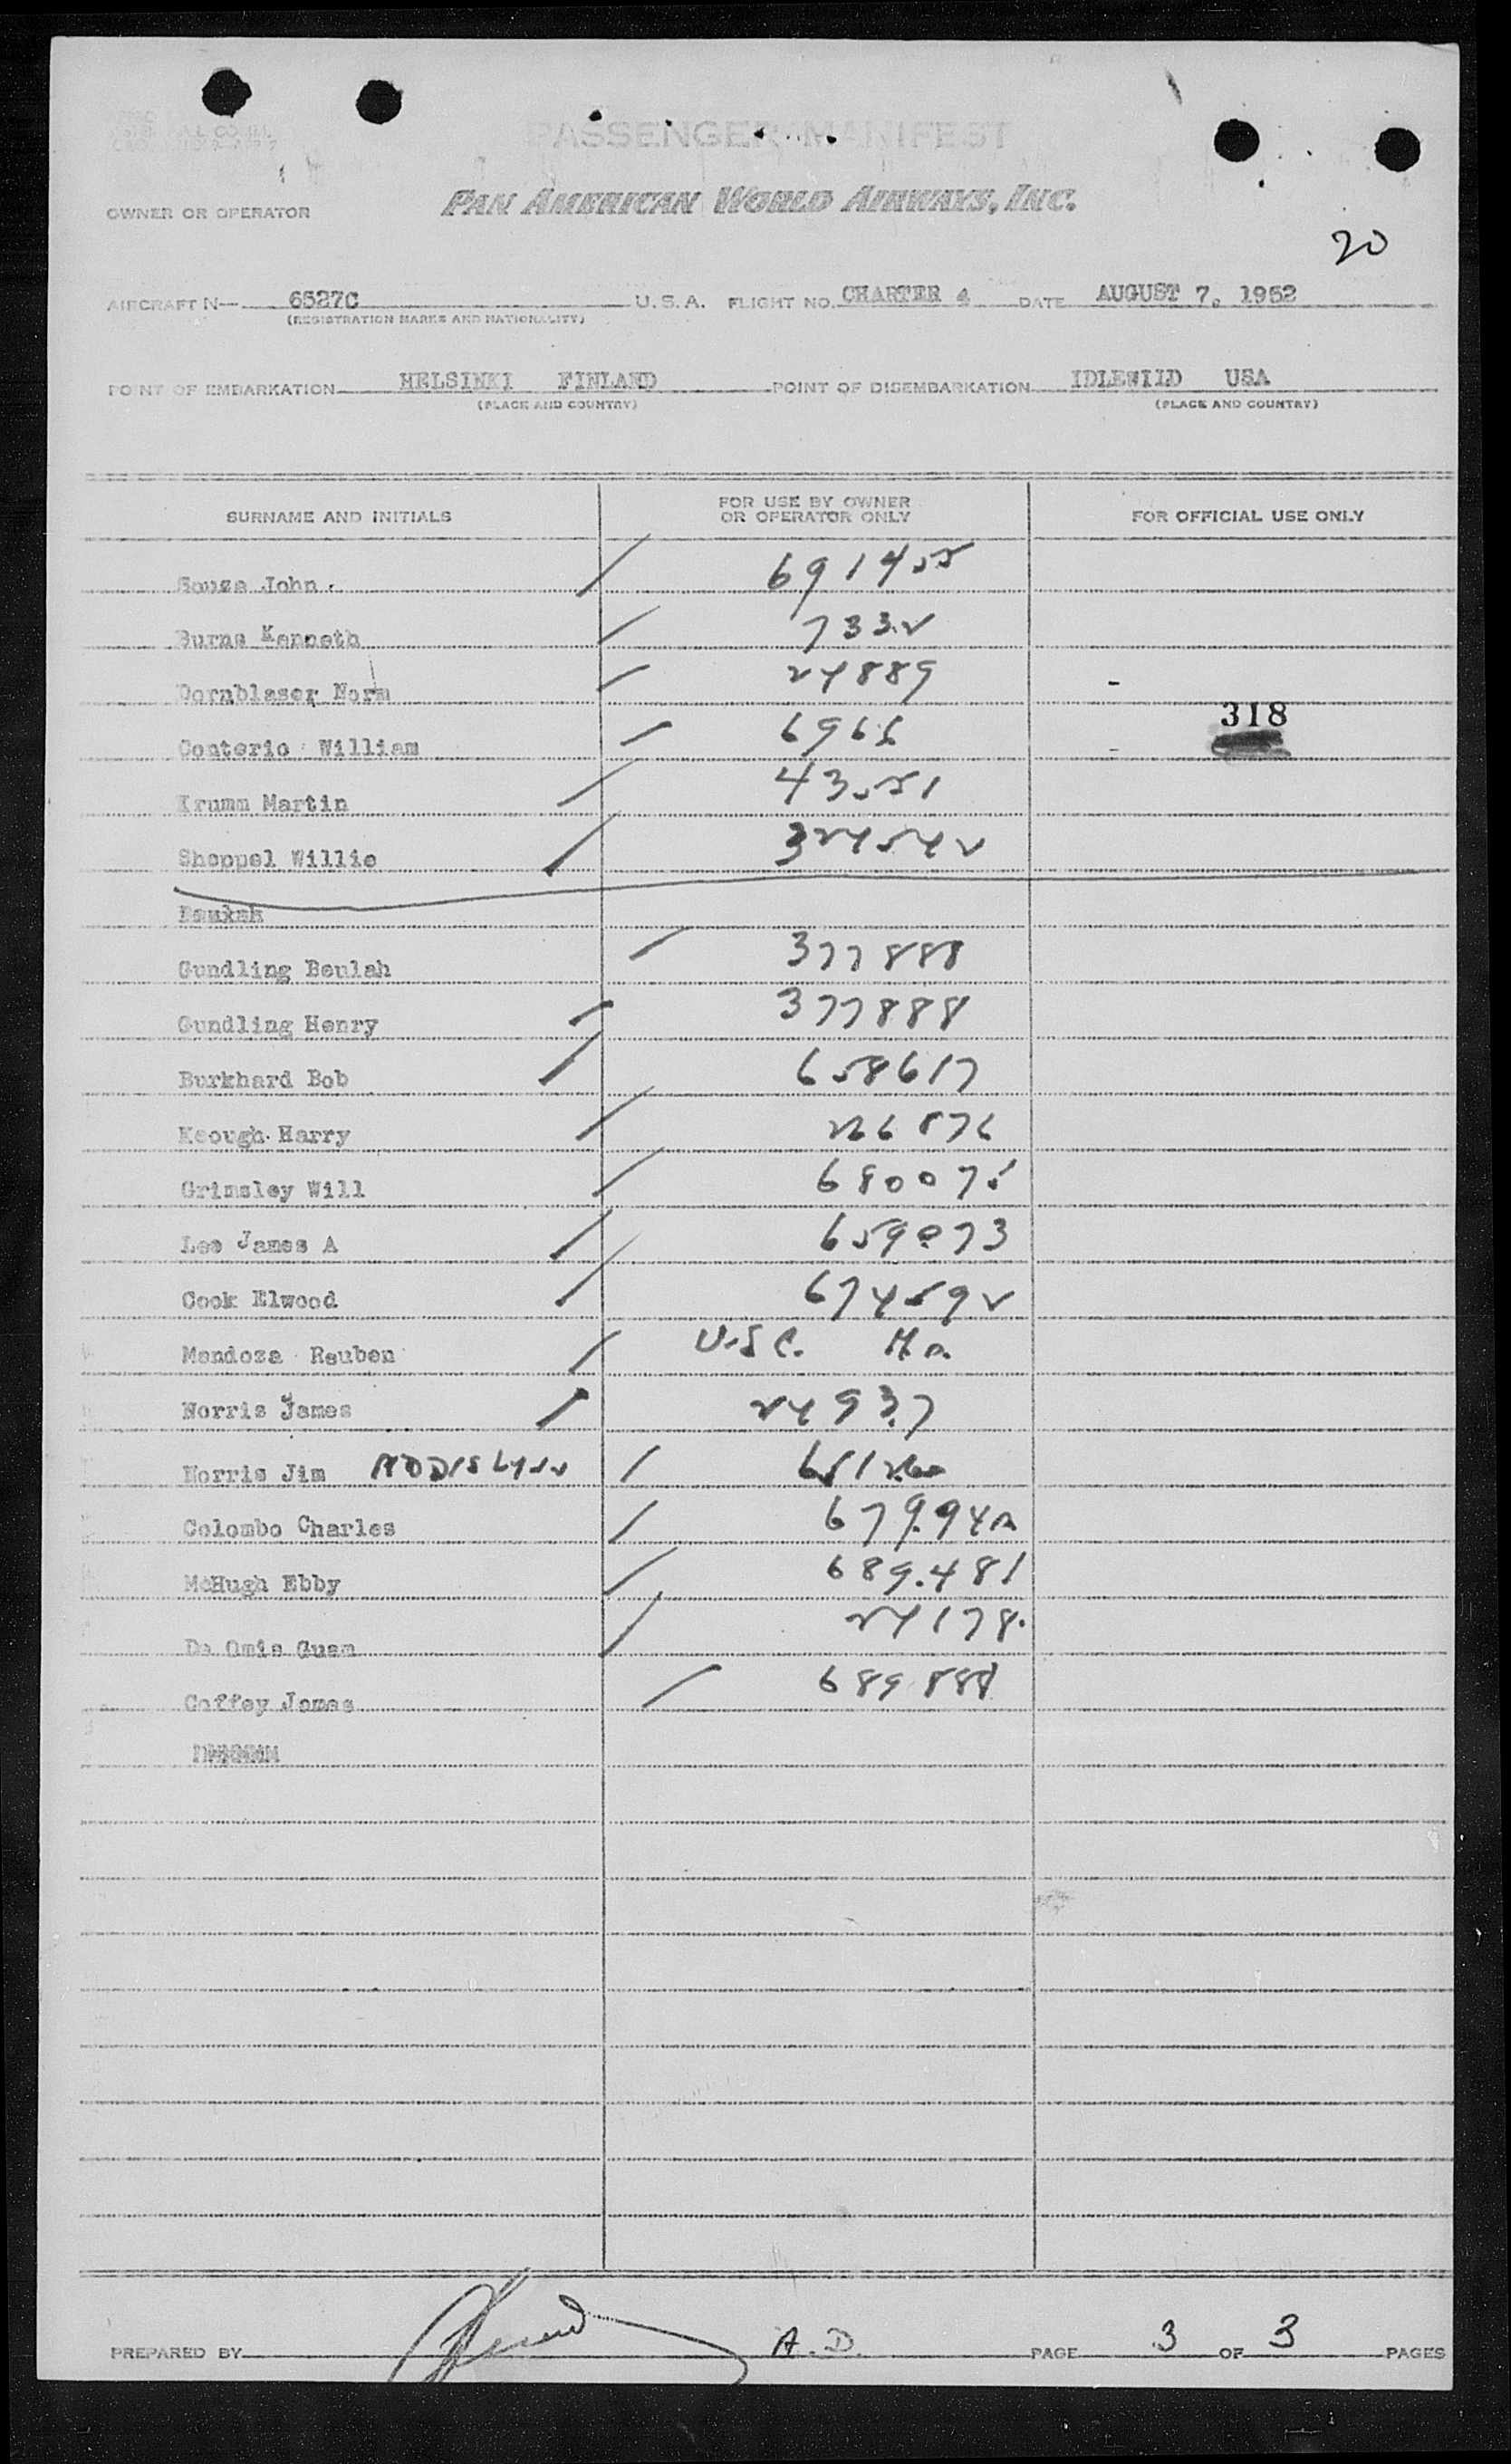 PASSENGER MANIFEST
OWNER OR OPERATOR PAN AMERICAN WORLD AIRWAYS, INC.
20
AIRCRAFT N— 6527C U. S. A. FLIGHT NO. CHARTER 4 DATE AUGUST 7, 1952
(REGISTRATION MARKS AND NATIONALITY)
POINT OF EMBARKATION HELSINKI FINLAND POINT OF DISEMBARKATION IDLEWILD USA
(PLACE AND COUNTRY) (PLACE AND COUNTRY)
SURNAME AND INITIALS FOR USE BY OWNER OR OPERATOR ONLY FOR OFFICIAL USE ONLY
Souza John 691455
Burns Kenneth 7332
Dornblaser Norm 24889
Conterio William 6966
318
Krumm Martin 43551
Sheppel Willie 324542
Beulah
Gundling Beulah 377888
Gundling Henry 377888
Burkhard Bob 658617
Keough Harry 266876
Grimsley Will 680075
Lee James A 659073
Cook Elwood 674592
Mendoza Reuben U.S.C.
Norris James 24937
Norris Jim
Colombo Charles
McHugh Ebby 689.481
De Omis Guam 24178.
Coffey James 689888
A.D.
PREPARED BY PAGE 3 OF 3 PAGES